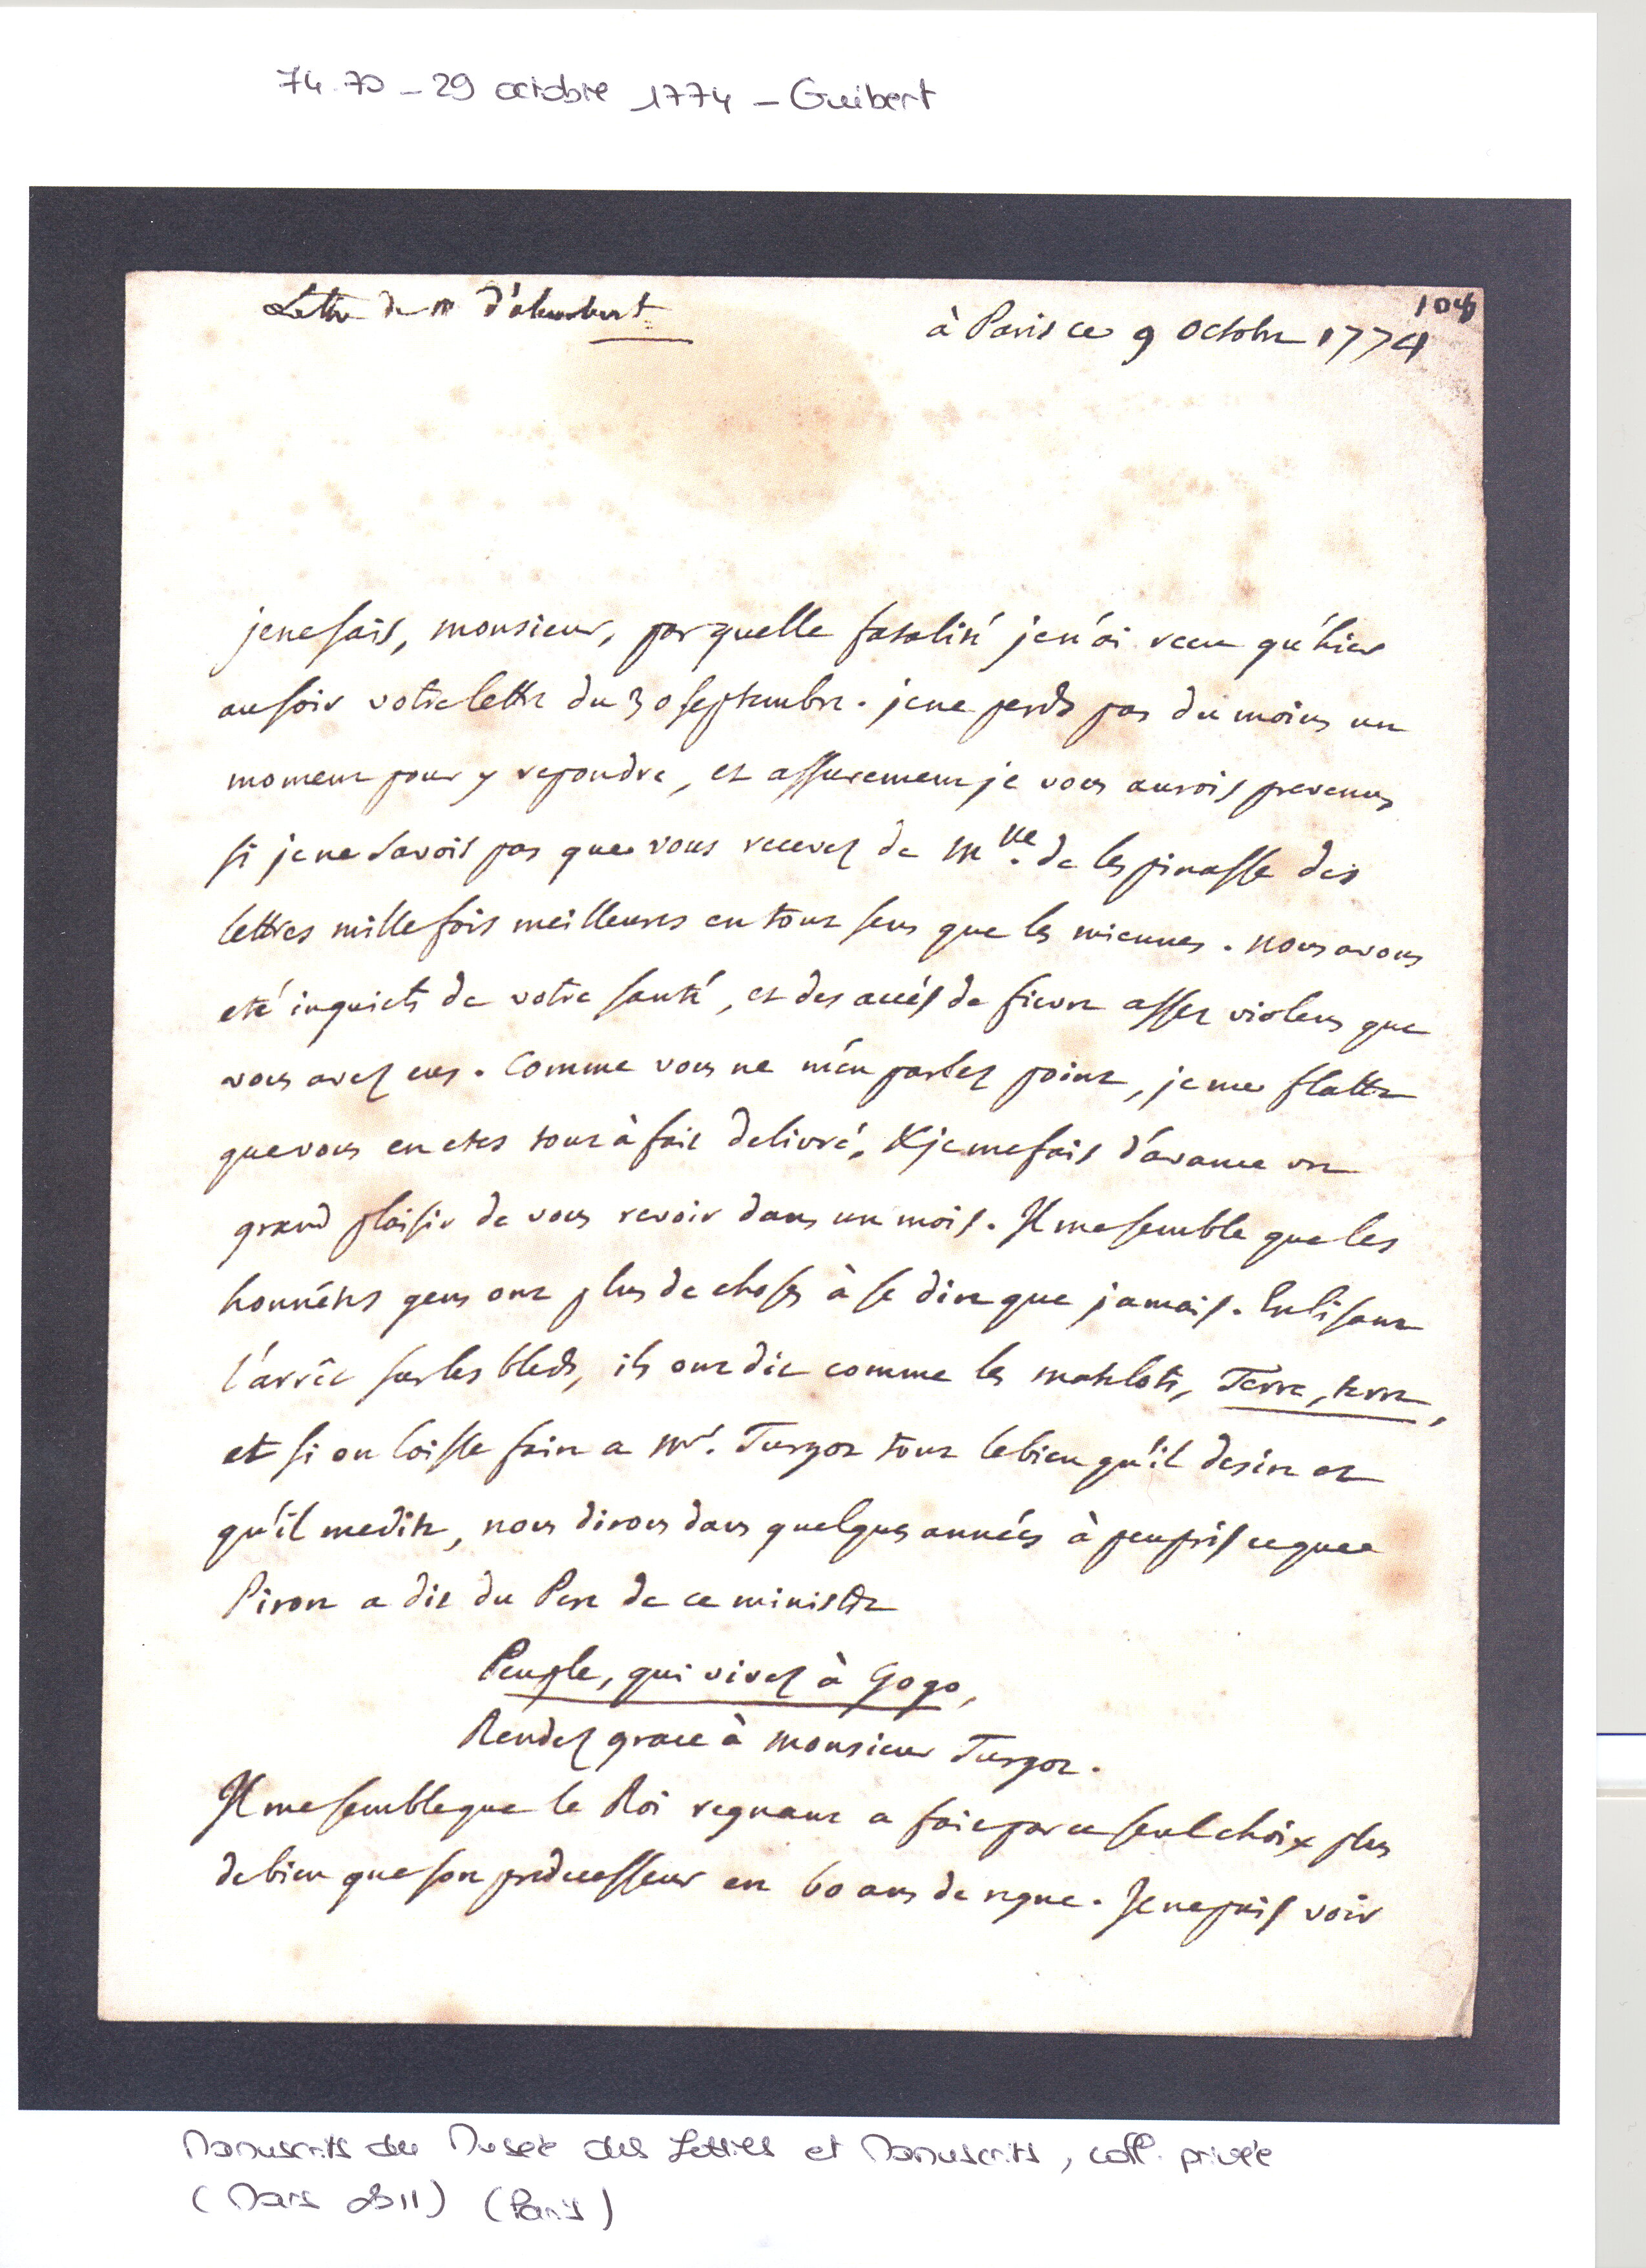 74.70 – 29 octobre 1774 – Guibert
Lettre de M d'alembert
104
à Paris ce 9 octobre 1774
je ne sais, monsieur, par quelle fatalité je n'ai recu qu'hier
au soir votre lettre du 30 septembre. je ne perds pas du moins un
moment pour y repondre, et assurement je vous aurois prevenu,
si je ne savois pas que vous recevez de Mlle. de lespinasse des
lettres mille fois meilleures en tout sens que les miennes. nous avons
eté inquiets de votre santé, et des accès de fievre assez violens que
vous avez eus. Comme vous ne m'en parlez point, je me flatte
que vous en etes tout à fait delivré, & je me fais d'avance un
grand plaisir de vous revoir dans un mois. Il me semble que les
honnêtes gens ont plus de choses à se dire que jamais. En lisant
l'arrêt sur les bleds, ils ont dit comme les matelots, Terre, terre,
et si on laisse faire a Mr. Turgot tout le bien qu'il desire et
qu'il medite, nous dirons dans quelques années à peu près ce que
Piron a dit du Pere de ce ministre
Peuple, qui vivez à Gogo,
Rendez grace à monsieur Turgot.
Il me semble que le Roi regnant a fait par ce seul choix plus
de bien que son predecesseur en 60 ans de regne. Je ne puis voir
Manuscrits du Musée des Lettres et Manuscrits, coll. privée
(Mars 2011) (Paris)